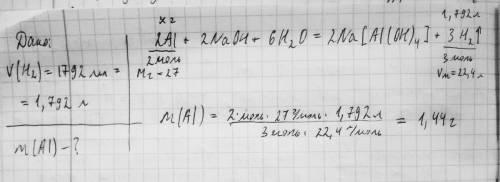 Дано:
V(H₂) = 1792 мл =
= 1,792 л
m(Al) - ?
x г 1,792 л
2Al + 2NaOH + 6H₂O = 2Na[Al(OH)₄] + 3H₂↑
2 моль 3 моль
Mr = 27 Vm = 22,4 л
m(Al) = 2 моль · 27 г/моль · 1,792 л / 3 моль · 22,4 л/моль = 1,44 г